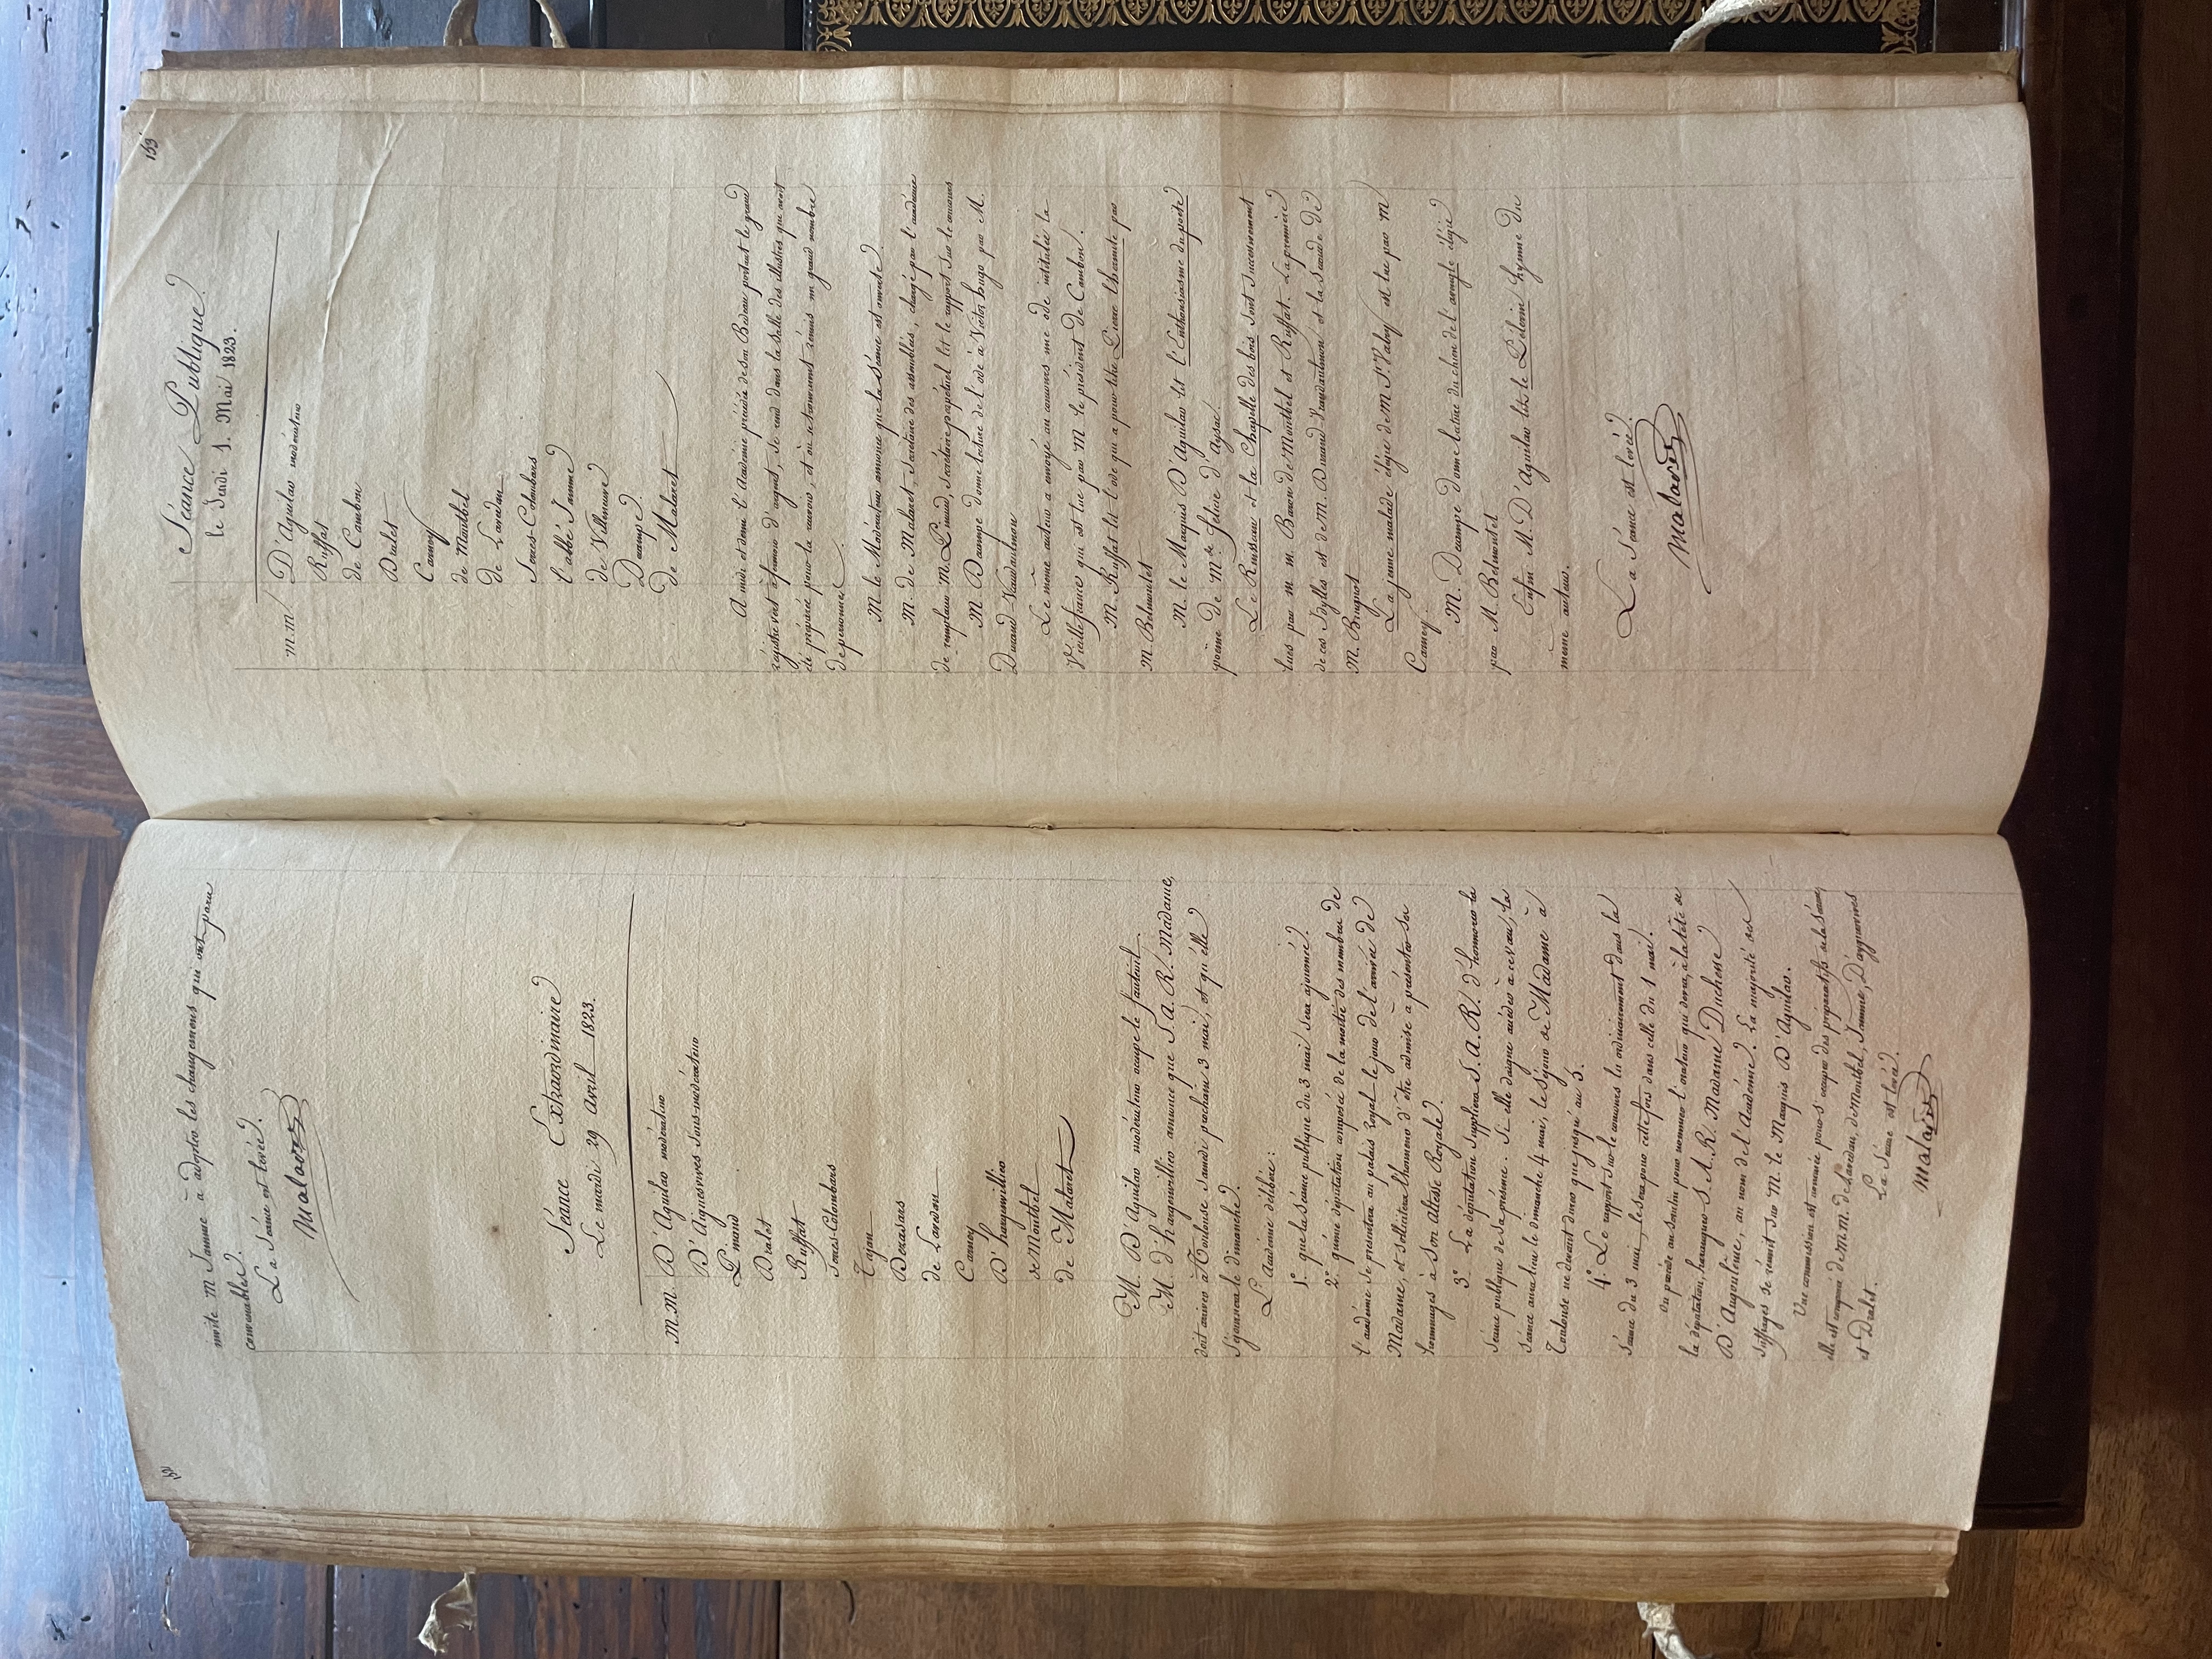 152
invite M Jamme à adopter les changemens qui ont paru
convenables.
La Séance est levée.
Malaret
Séance Extraordinaire
Le mardi 29 avril 1823.
M.M. D'Aguilar modérateur
D'Aiguesvives sous-modérateur
Pinaud
Dralet
Ruffat
Serres-Colombars
Tajan
Decasars
de Lavedan
Carney
D'hargenvillier
de Montbel
de Malaret
M. D'Aguilar modérateur occupe le fauteuil.
M. d'hargenvillier annonce que S. A. R. Madame,
doit arriver à Toulouse Samedi prochain 3 mai, et qu'elle
Séjournera le dimanche.
L'Académie délibère:
1.° que la Séance publique du 3 mai Sera ajournée.
2.° qu'une députation composée de la moitié des membres de
l'académie Se presentera au palais Royal le jour de l'arrivée de
Madame, et Sollicitera l'honneur d'être admise à présenter Ses
hommages à Son Altesse Royale.
3.° La députation Suppliera S. A. R. d'honorer la
Séance publique de Sa présence. Si elle daigne accéder à ces vœux, la
Séance aura lieu le dimanche 4 mai, le Séjour de Madame à
Toulouse ne devant durer que jusqu'au 5.
4.° Le rapport Sur le concours lu ordinairement dans la
Séance du 3 mai, le Sera pour cette fois dans celle du 1 mai.
On procède au Scrutin pour nommer l'orateur qui devra, à la tête de
la députation, haranguer S. A. R. Madame Duchesse
D'Angoulême, au nom de l'Académie. La majorité des
Suffrages Se réunit Sur M. le Marquis D'Aguilar.
Une commission est nommée pour S'occuper des préparatifs de la Séance
elle est composée de M.M. de Lavedan, de Montbel, Jamme, D'aiguesvives
et Dralet.
La Séance est levée.
Malaret
153
Séance Publique
le Jeudi 1. Mai 1823.
M.M. D'Aguilar modérateur
Ruffat
de Cambon
Dralet
Carney
de Montbel
de Lavedan
Serres-Colombars
l'abbé Jamme
de Villeneuve
Decampe
de Malaret
A midi et demi l'Académie précédée de Son Bedeau portant le grand
régistre vert à fermoir d'argent, Se rend dans la Salle des illustres qui avoit
été préparée pour la recevoir, et où se trouvoient réunis un grand nombre
de personnes.
M. le Modérateur annonce que la Séance est ouverte.
M. de Malaret, Secrétaire des assemblées, chargé par l'académie
de remplacer M. Pinaud, Secrétaire perpétuel lit le rapport Sur le concours
M. Decampe donne lecture de l'ode à Victor hugo par M.
Durand-Vandaulmon
Le même auteur a envoyé au concours une ode intitulée la
Vieille france qui est lue par M le président de Cambon.
M. Ruffat lit l'ode qui a pour titre Pierre l'hermite par
M. Belmontet
M. le Marquis D'Aguilar lit l'Enthousiasme du poete
poëme de M.de Felicie d'Aysac.
Le Ruisseau et la Chapelle des bois Sont Successivement
lues par M. M. Baron de Montbel et Ruffat. La premiere
de ces Idylles est de M. Durand-Vandaulmon et la Seconde de
M. Brugnot
La jeune malade élégie de M. St. Valry est lue par M
Carney.
M. Decampe donne lecture du chien de l'aveugle élégie
par M Belmontet
Enfin M. D'Aguilar lit le Pélerin hymne du
même auteur.
La Séance est levée.
Malaret